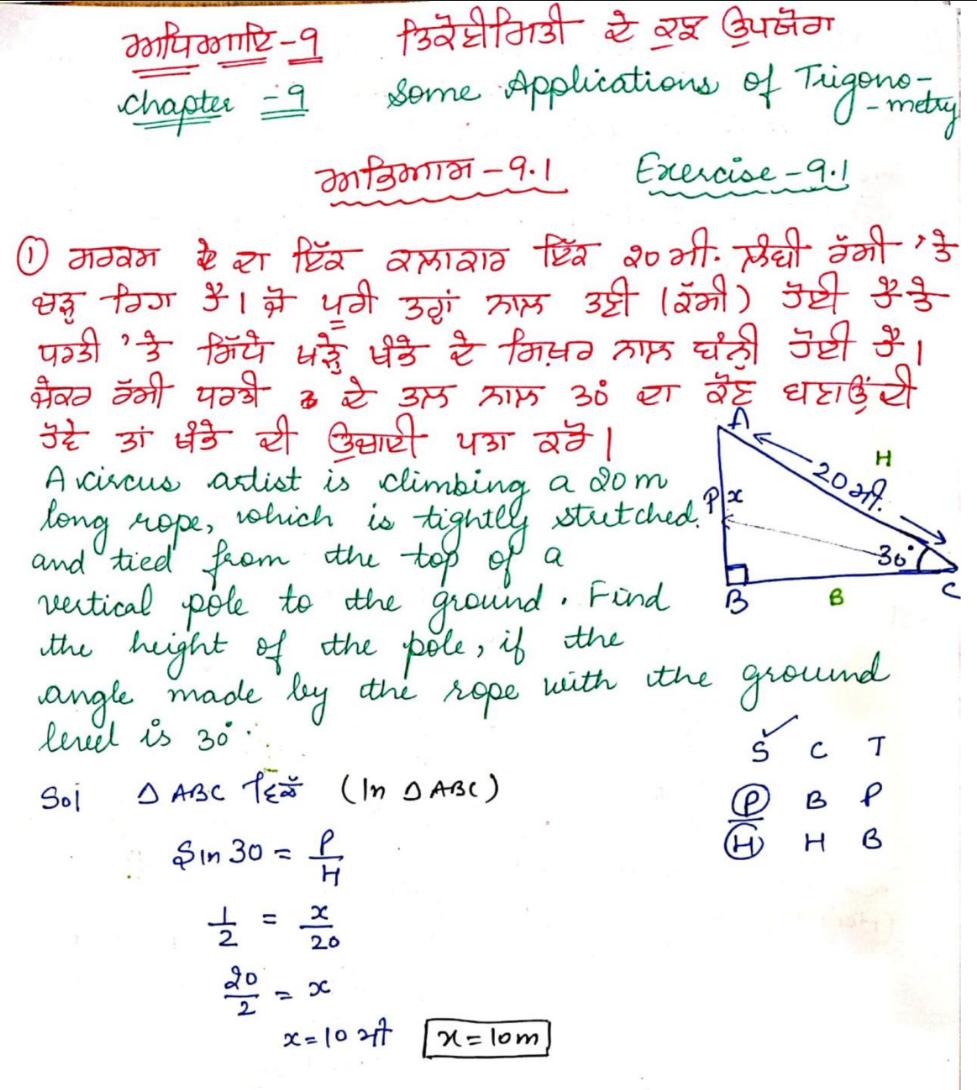 ਅਧਿਆਇ-9 ਤਿਕੋਣਮਿਤੀ ਦੇ ਕੁਝ ਉਪਯੋਗ
Chapter -9 Some Applications of Trigono-
-metry
ਅਭਿਆਸ -9.1 Exercise -9.1
① ਸਰਕਸ ਦਾ ਇੱਕ ਕਲਾਕਾਰ ਇੱਕ 20 ਮੀ. ਲੰਬੀ ਰੱਸੀ 'ਤੇ
ਚੜ੍ਹ ਰਿਹਾ ਹੈ। ਜੋ ਪੂਰੀ ਤਰ੍ਹਾਂ ਨਾਲ ਤਣੀ (ਕੱਸੀ) ਹੋਈ ਹੈ ਤੇ
ਧਰਤੀ 'ਤੇ ਸਿੱਧੇ ਖੜ੍ਹੇ ਖੰਭੇ ਦੇ ਸਿਖ਼ਰ ਨਾਲ ਬੰਨ੍ਹੀ ਹੋਈ ਹੈ।
ਜੇਕਰ ਰੱਸੀ ਧਰਤੀ ਦੇ ਤਲ ਨਾਲ 30° ਦਾ ਕੋਣ ਬਣਾਉਂਦੀ
ਹੋਵੇ ਤਾਂ ਖੰਭੇ ਦੀ ਉਚਾਈ ਪਤਾ ਕਰੋ।
A circus artist is climbing a 20 m
long rope, which is tightly stretched
and tied from the top of a
vertical pole to the ground. Find
the height of the pole, if the
angle made by the rope with the ground
level is 30°.
A
H
20 ਮੀ.
P x
30°
B B C
S C T
P B P
H H B
Sol ∆ ABC ਵਿੱਚ (In ∆ ABC)
Sin 30 = P/H
1/2 = x/20
20/2 = x
x = 10 ਮੀ x = 10m